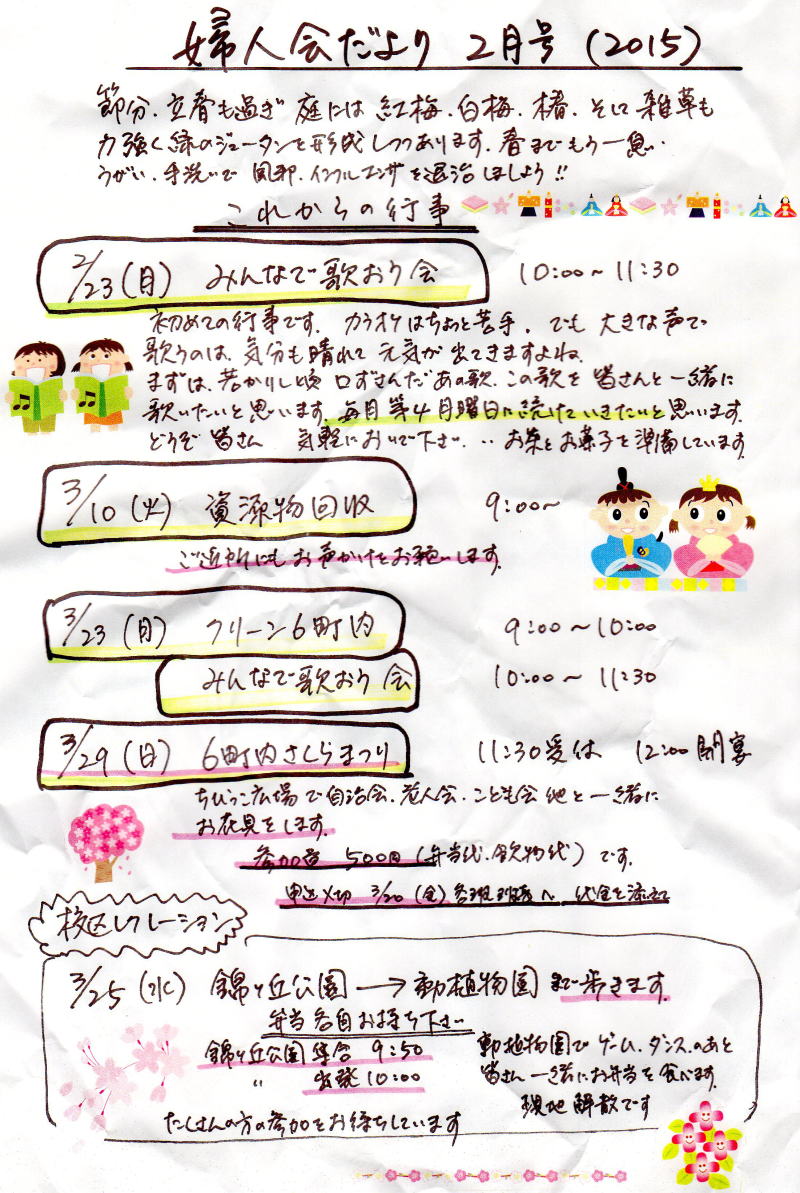 婦人会だより 2月号 (2015)
節分.立春も過ぎ 庭には 紅梅.白梅.椿.そして 雑草も
力強く緑のジュータンを形成しつつあります.春までもう一息..
うがい.手洗いで 風邪.インフルエンザを退治しましよう!!
これからの行事
2/23(月) みんなで歌おう会 10:00~11:30
初めての行事です. カラオケはちょっと苦手.でも 大きな声で
歌うのは.気分も晴れて 元気が出てきますよね.
まずは.若かりし頃 口ずさんだあの歌.この歌を 皆さんと一緒に
歌いたいと思います.毎月第4月曜日に続けていきたいと思います.
どうぞ皆さん 気軽においで下さい... お茶とお菓子を準備しています.
3/10(火) 資源物回収 9:00~
ご近所にもお声かけをお願いします.
3/23(月) クリーン6町内 9:00~10:00
みんなで歌おう会 10:00~11:30
3/29(日) 6町内さくらまつり 11:30受付 12:00開宴
ちびっこ広場で自治会.老人会.こども会他と一緒に
お花見をします.
参加費 500円(弁当代.飲物代)です.
申込〆切 3/20(金)各班班長へ 代金を添えて
校区レクレーション
3/25(水) 錦ヶ丘公園→動植物園まで歩きます.
弁当各自お持ち下さい
錦ヶ丘公園 集合 9:50
〃 出発 10:00
動植物園でゲーム.ダンス.のあと
皆さん一緒にお弁当を食べます.
現地解散です
たくさんの方の参加をお待ちしています